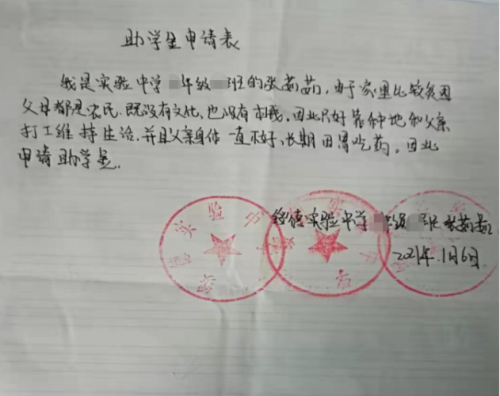 助学金申请表
我是实验中学 年级 班的张茹茹，由于家里比较贫困
父母都是农民，既没有文化，也没有本钱，因此只好靠种地和父亲
打工维持生活，并且父亲身体一直不好，长期因胃吃药。因此
申请助学金。
绥德实验中学 年级 班 张茹茹
2021年.1月6日